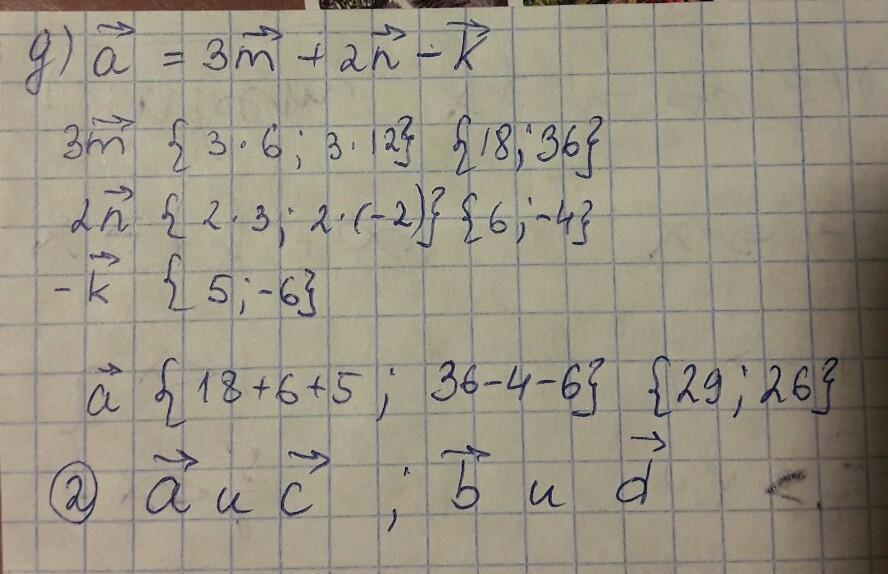 д) a⃗ = 3m⃗ + 2n⃗ - k⃗
3m⃗ {3·6; 3·12} {18; 36}
2n⃗ {2·3; 2·(-2)} {6; -4}
-k⃗ {5; -6}
a⃗ {18+6+5; 36-4-6} {29; 26}
② a⃗ и c⃗ ; b⃗ и d⃗